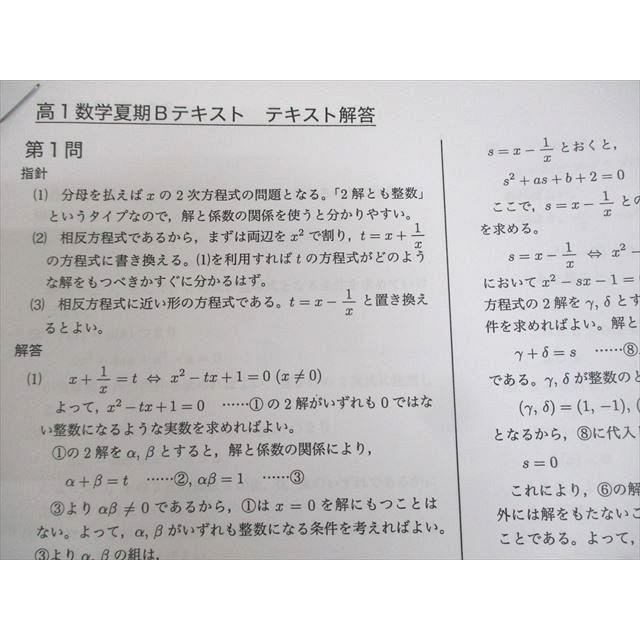 高1数学夏期Bテキスト　テキスト解答
第1問
指針
(1) 分母を払えば x の 2 次方程式の問題となる。「2 解とも整数」
というタイプなので，解と係数の関係を使うと分かりやすい。
(2) 相反方程式であるから，まずは両辺を x² で割り，t = x + 1/x
の方程式に書き換える。(1)を利用すれば t の方程式がどのよう
な解をもつべきかすぐに分かるはず。
(3) 相反方程式に近い形の方程式である。t = x − 1/x と置き換え
るとよい。
解答
(1) x + 1/x = t ⇔ x² − tx + 1 = 0 (x ≠ 0)
よって，x² − tx + 1 = 0 ……① の 2 解がいずれも 0 ではな
い整数になるような実数を求めればよい。
①の 2 解を α, β とすると，解と係数の関係により，
α + β = t ……②, αβ = 1 ……③
③より αβ ≠ 0 であるから，①は x = 0 を解にもつことは
ない。よって，α, β がいずれも整数になる条件を考えればよい。
③より α, β の組は，
s = x − 1/x とおくと，
s² + as + b + 2 = 0
ここで，s = x − 1/x との
を求める。
s = x − 1/x ⇔ x² −
において x² − sx − 1 =
方程式の 2 解を γ, δ とす
件を求めればよい。解と
γ + δ = s ……⑧
である。γ, δ が整数のと
(γ, δ) = (1, −1), (
となるから，⑧に代入
s = 0
これにより，⑥の解
外には解をもたないこ
ことである。よって，